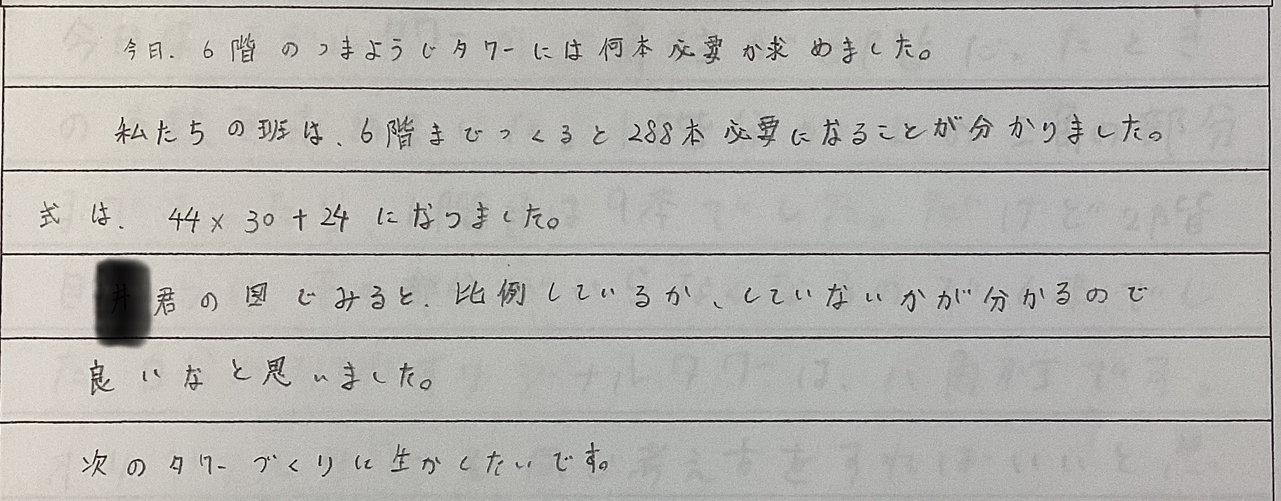 今日、6階のつまようじタワーには何本必要か求めました。
私たちの班は、6階までつくると288本必要になることが分かりました。
式は、44×30+24になつました。
君の図でみると、比例しているか、していないかが分かるので
良いなと思いました。
次のタワーづくりに生かしたいです。